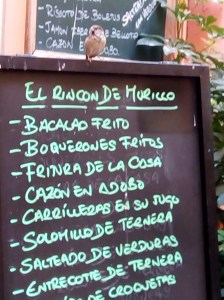 - RISOTTO DE BOLETUS
- JAMÓN IBERICO BELLOTA
- CAZÓN EN ADOBO
EL RINCON DE MURILLO
- BACALAO FRITO
- BOQUERONES FRITOS
- FRITURA DE LA CASA
- CAZÓN EN ADOBO
- CARRILLERAS EN SU JUGO
- SOLOMILLO DE TERNERA
- SALTEADO DE VERDURAS
- ENTRECOTTE DE TERNERA
DE CROQUETAS